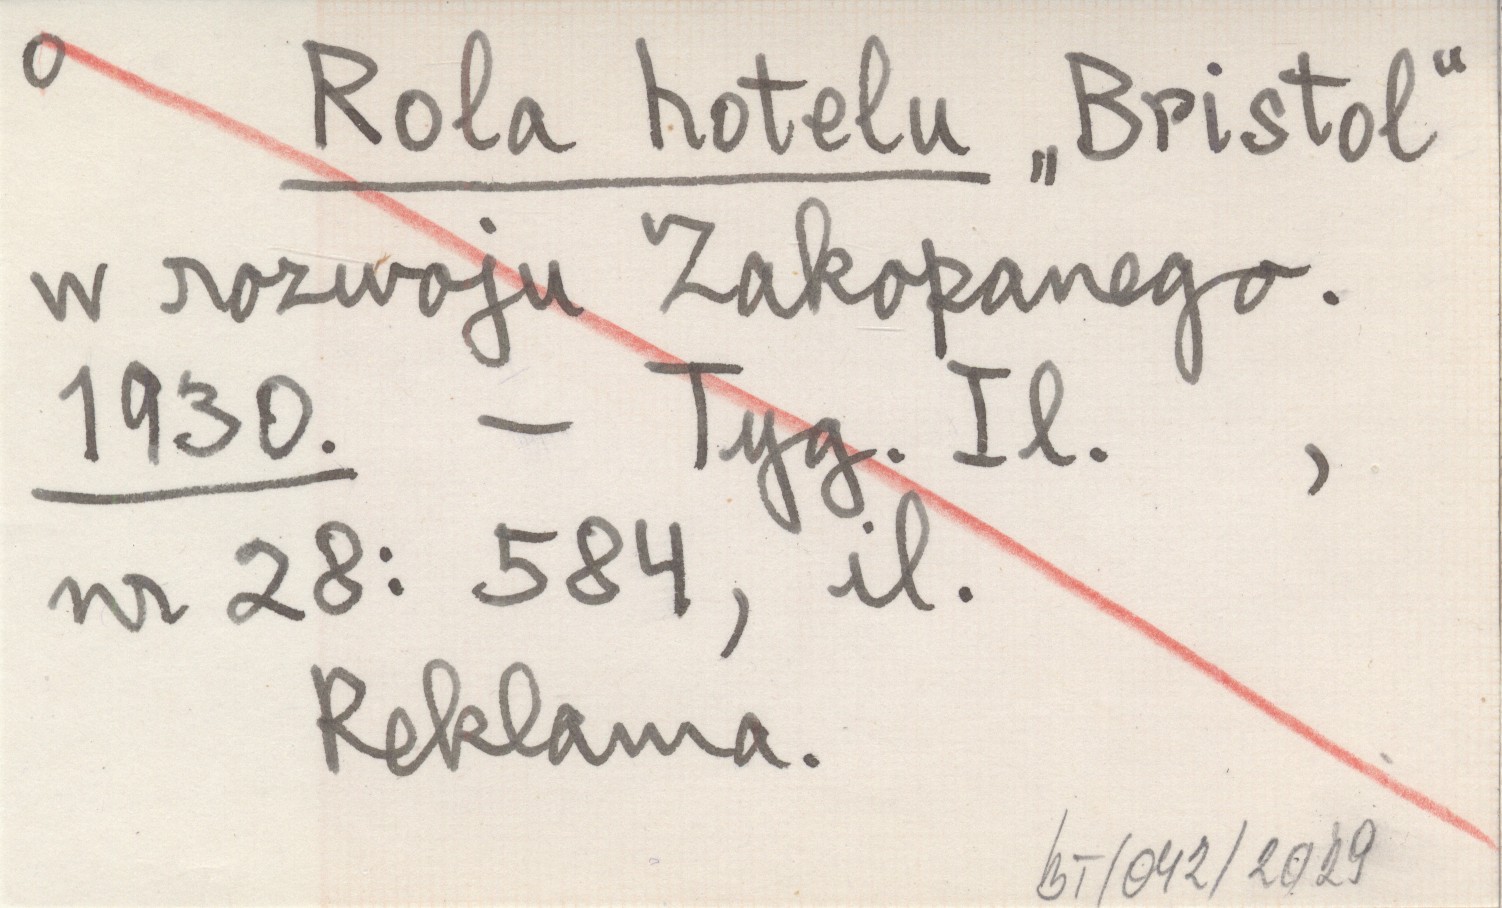 o Rola hotelu „Bristol“
w rozwoju Zakopanego.
1930. — Tyg. Il. ,
nr 28: 584, il.
Reklama.
BT/042/2029